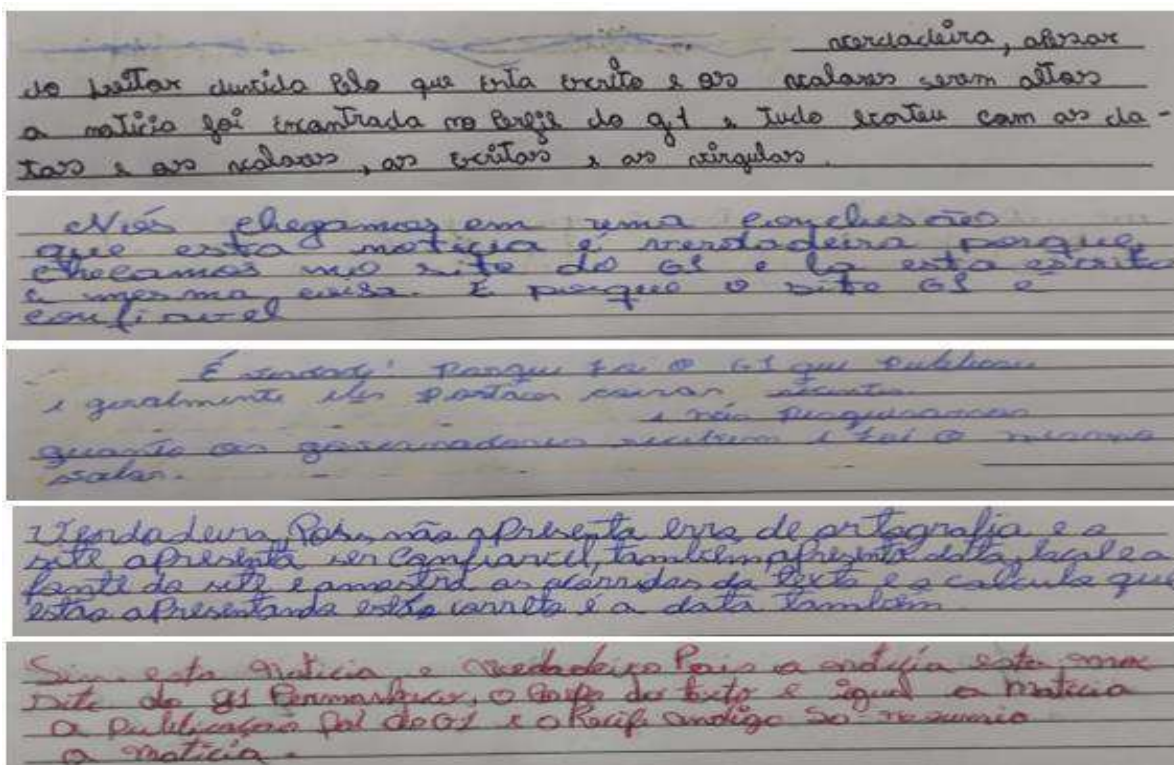 verdadeira, apesar
do leitor duvida pelo que esta escrito e os valores serem altos
a noticia foi encontrada no perfil do g1 e tudo com as da-
tas e os valores, as escritas e as virgulas.
Nós chegamos em uma conclusão
que esta noticia é verdadeira porque
checamos no site do G1 e la esta escrito
a mesma coisa. E porque o site G1 é
confiavel
É verdade! Porque foi o G1 que publicou
e geralmente eles postam coisas
e nós pesquisamos
quanto os governadores recebem e foi o mesmo
salar.
Verdadeira, Pois não apresenta erro de ortografia e o
site apresenta ser confiavel, também apresenta data, local e a
fonte do site e amostra as do texto e o calculo que
estão apresentando estão correto e a data também
Sim esta noticia e verdadeiro Pois a noticia esta
site do g1 o corpo do texto e igual a noticia
a publicação foi do G1 e o Recife so resumio
a noticia.